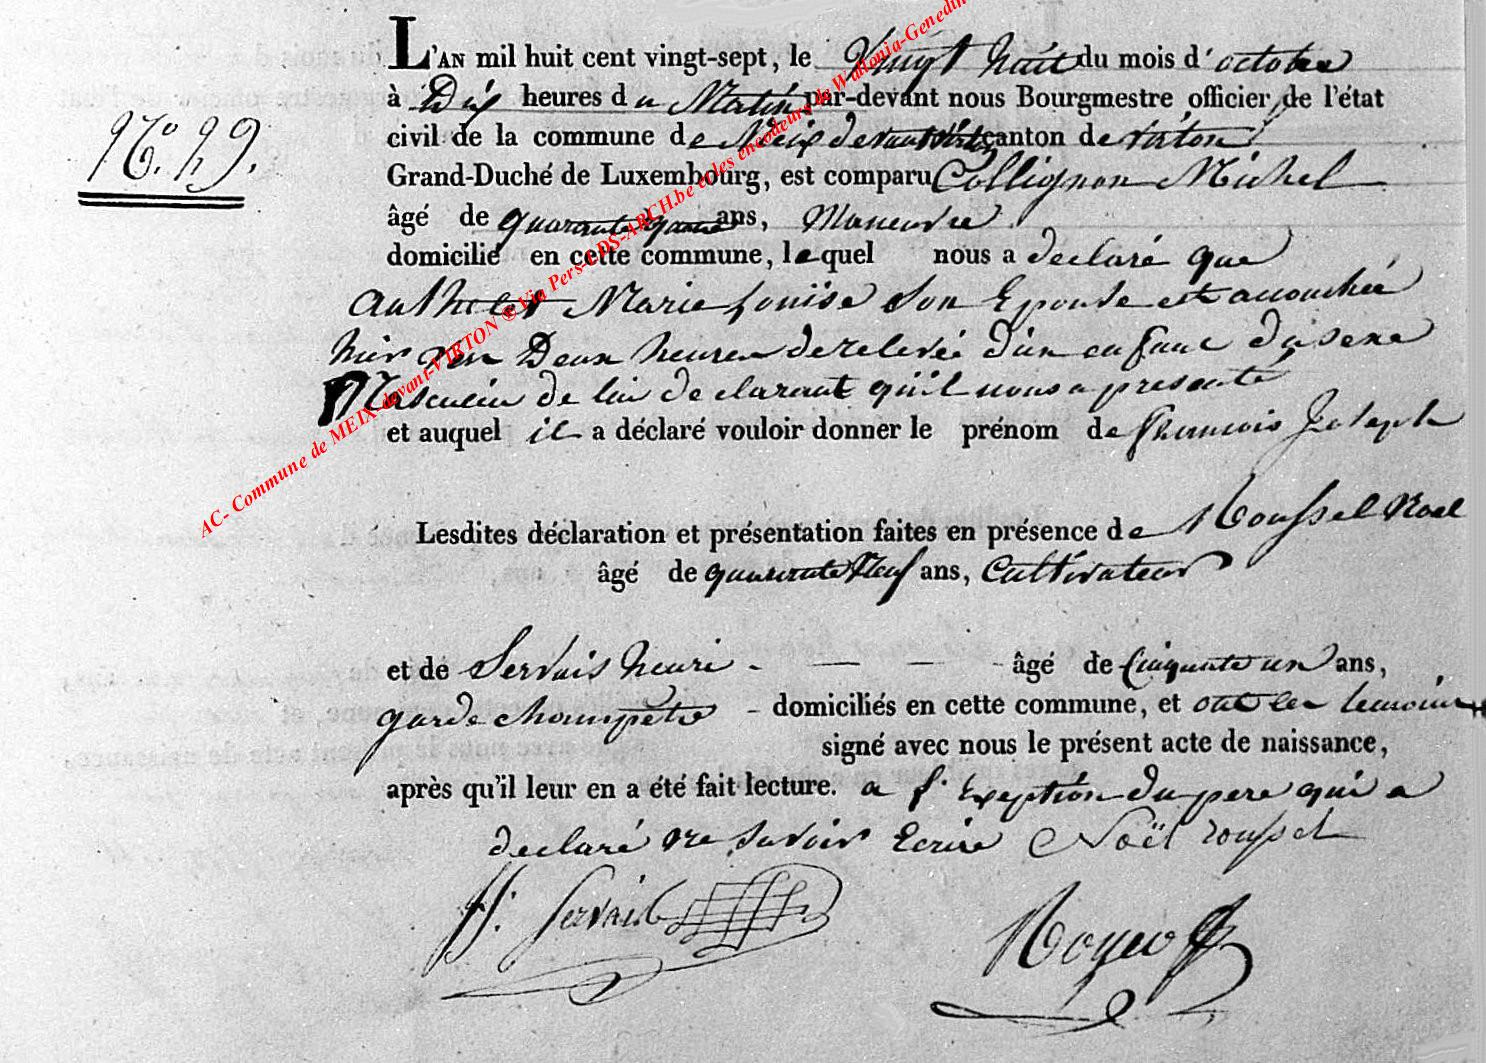 L'AN mil huit cent vingt-sept, le Vingt huit du mois d'octobre
à Dix heures du Matin par-devant nous Bourgmestre officier de l'état
N.o 29.
civil de la commune de Meix devant Virton canton de virton
Grand-Duché de Luxembourg, est comparu Collignon Michel
âgé de quarante quatre ans, Maneuvre
domicilié en cette commune, lequel nous a declaré que
Authelet Marie Louise Son Epouse est accouchée
hier vers Deux heures de relevée d'un enfant du sexe
Masculin de lui declarant qu'il nous a presenté
et auquel il a déclaré vouloir donner le prénom de francois Joseph
Lesdites déclaration et présentation faites en présence de Roussel Noel
âgé de quarante Neuf ans, Cultivateur
et de Servais henri - — — - âgé de Cinquante un ans,
garde champetre - domiciliés en cette commune, et ont les temoins
signé avec nous le présent acte de naissance,
après qu'il leur en a été fait lecture. a l'Exeption du pere qui a
declaré ne Savoir Ecrire Noël roussel
H. Servais
AC- Commune de MEIX devant-VIRTON ® Via Pers-LDS-ARCH.be & les encodeurs de Wallonia-Genedin